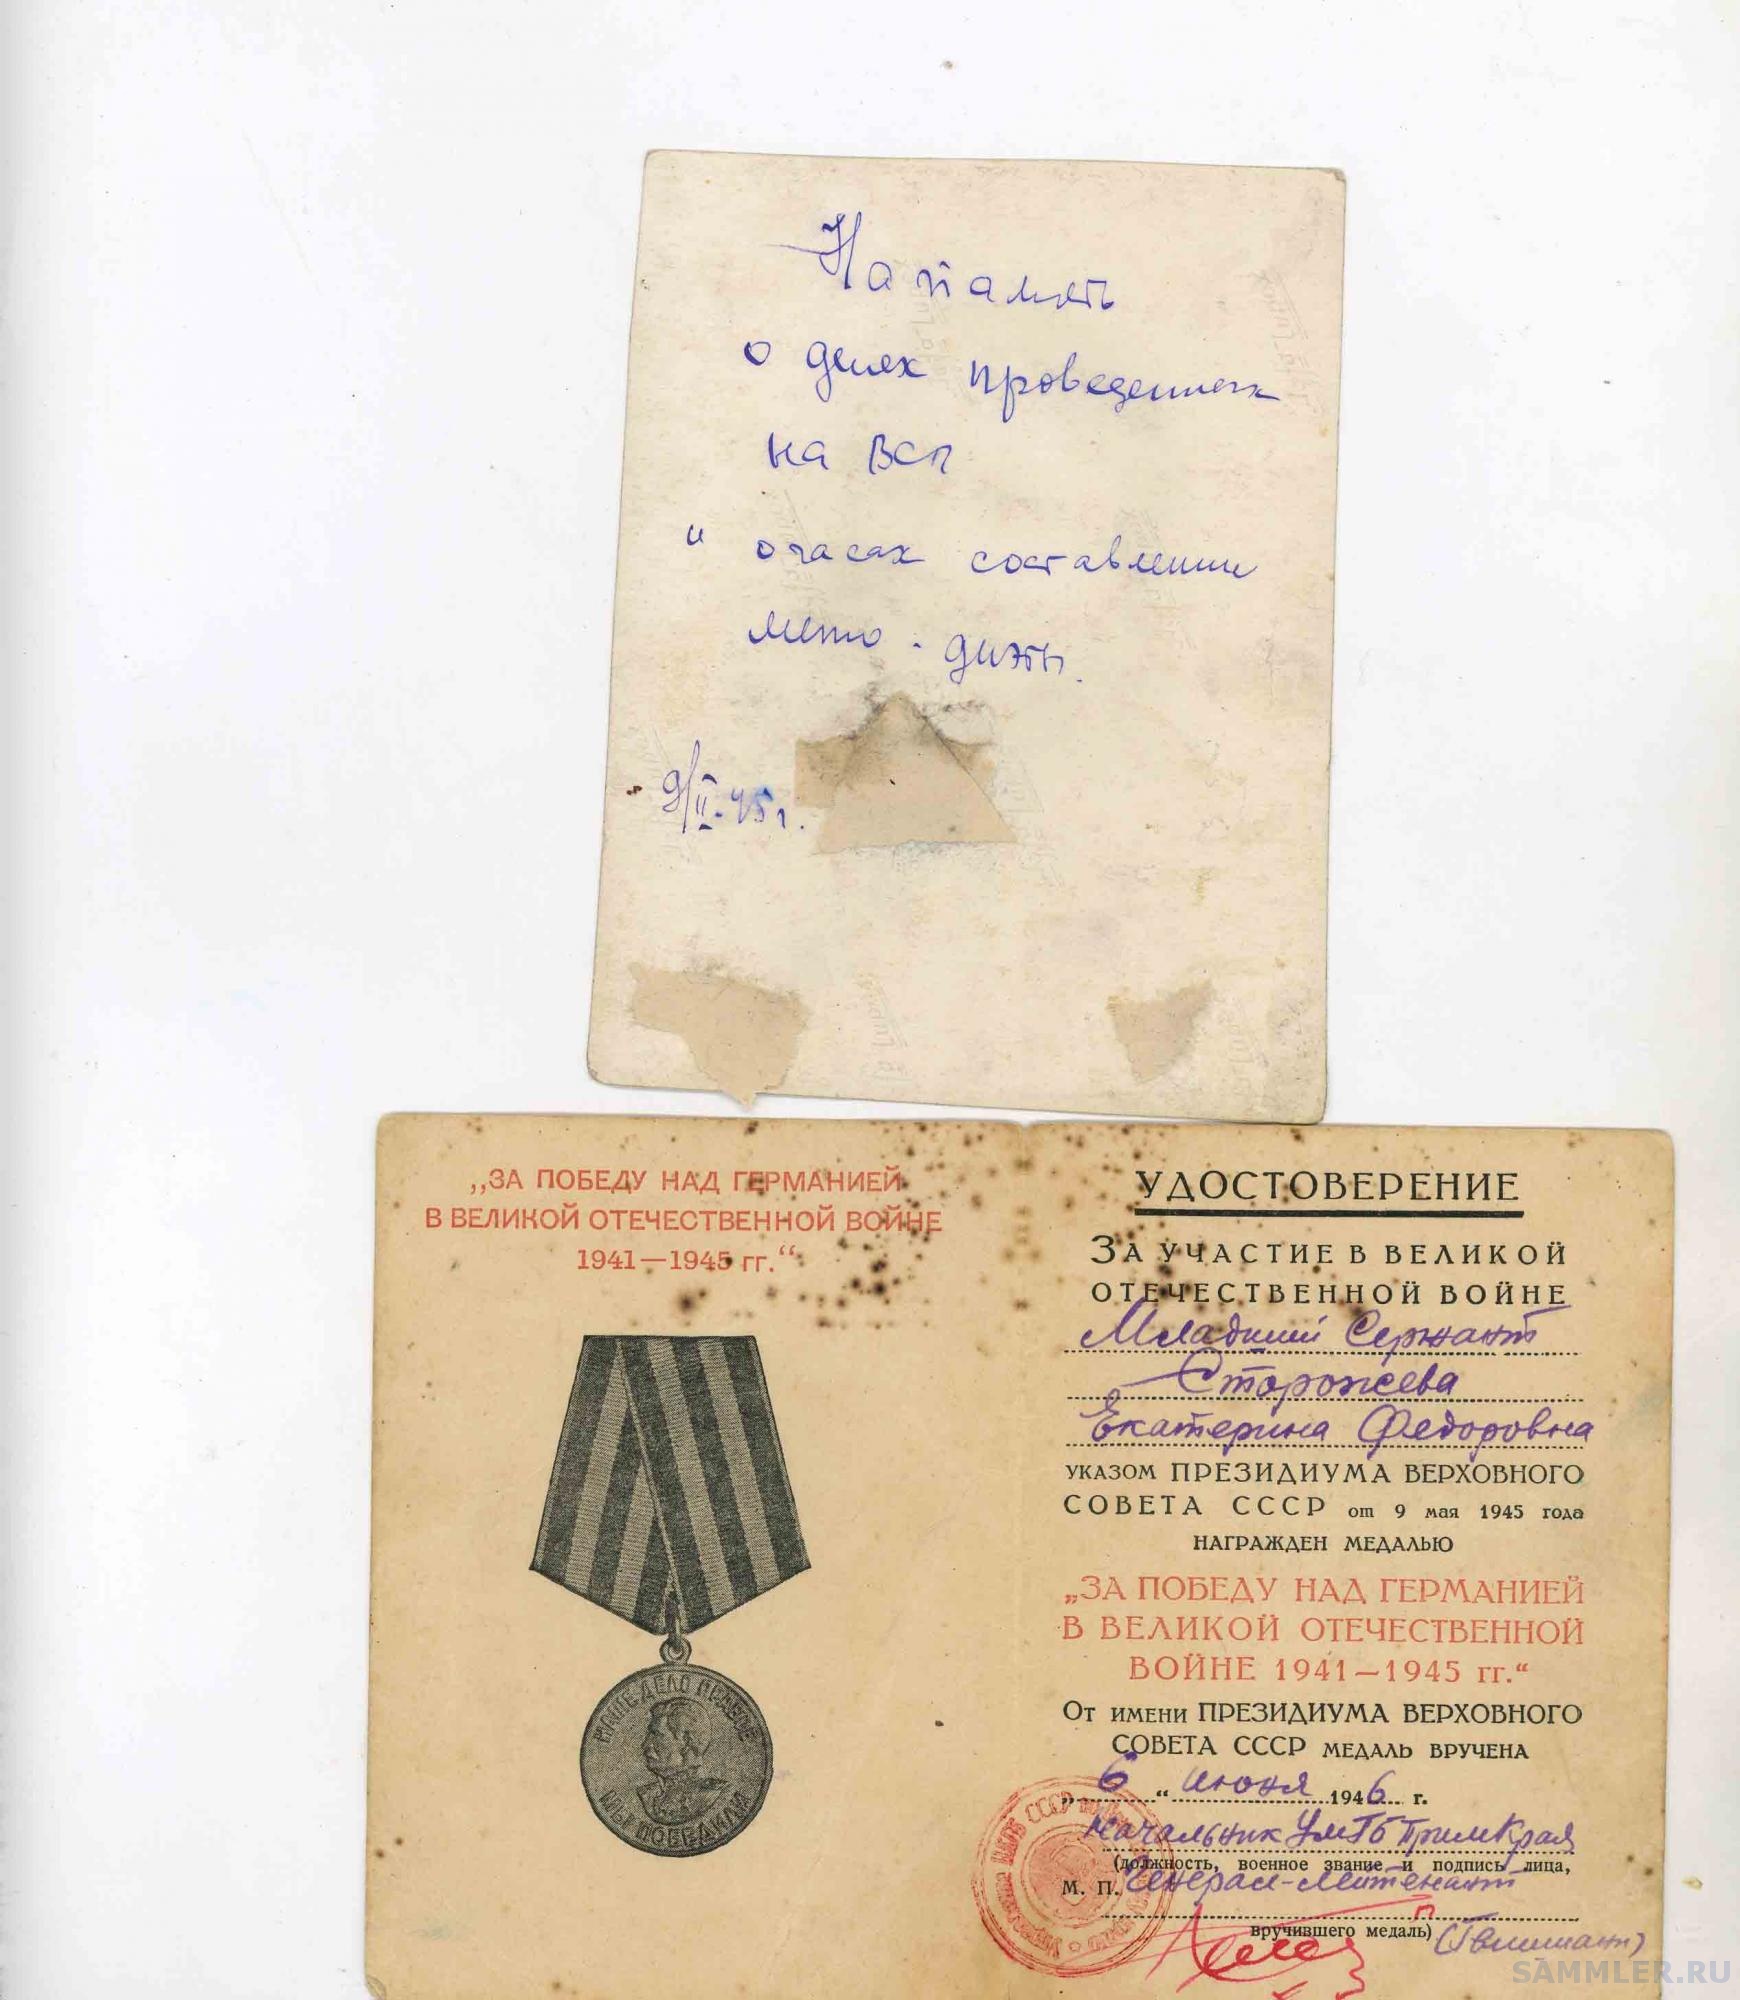 На память
о днях проведенных
на ВСП
и о часах составления
мето. диэты.
9/II-45 г.
„ЗА ПОБЕДУ НАД ГЕРМАНИЕЙ
В ВЕЛИКОЙ ОТЕЧЕСТВЕННОЙ ВОЙНЕ
1941—1945 гг.“
НАШЕ ДЕЛО ПРАВОЕ
МЫ ПОБЕДИЛИ
УДОСТОВЕРЕНИЕ
ЗА УЧАСТИЕ В ВЕЛИКОЙ
ОТЕЧЕСТВЕННОЙ ВОЙНЕ
Младший Сержант
Сторожева
Екатерина Федоровна
УКАЗОМ ПРЕЗИДИУМА ВЕРХОВНОГО
СОВЕТА СССР от 9 мая 1945 года
НАГРАЖДЕН МЕДАЛЬЮ
„ЗА ПОБЕДУ НАД ГЕРМАНИЕЙ
В ВЕЛИКОЙ ОТЕЧЕСТВЕННОЙ
ВОЙНЕ 1941—1945 гг.“
ОТ ИМЕНИ ПРЕЗИДИУМА ВЕРХОВНОГО
СОВЕТА СССР МЕДАЛЬ ВРУЧЕНА
„6“ июня 1946 г.
Начальник УМГБ ПримКрая
(должность, военное звание и подпись лица,
М. П. Генерал-лейтенант
вручившего медаль) (Гвишиани)
SAMMLER.RU